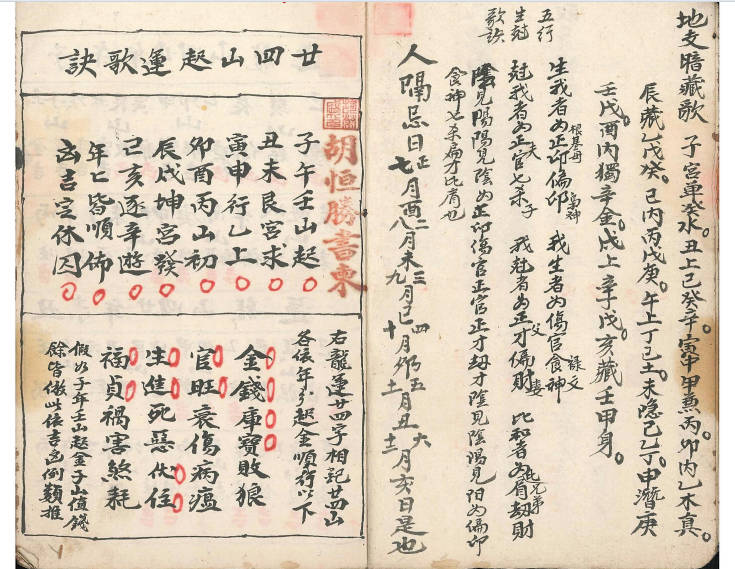 地支暗藏歌 子宮單癸水。丑上己癸辛。寅中甲兼丙。卯内乙木真。
辰藏乙戊癸。巳内丙戊庚。午上丁己土。未隐己乙丁。申潛庚
壬戊。酉内獨辛金。戌上辛丁戊。亥藏壬甲身。
五行
生尅
歌訣
生我者为正印偏印 我生者为傷官食神
根基母 梟神 祿文
尅我者为正官七杀 我尅者为正才偏財 比和者为肩劫財
夫 子 父 妻 比兄弟
陰見陽陽見陰为正印傷官正官正才劫才陰見陰陽見阳为偏印
食神七杀扁才比肩也
人隔忌日 正七月酉 二八月未 三九月巳 四十月卯 五十一月丑 六十二月亥日是也
廿四山起運歌訣
胡恒勝書柬
子午壬山起
丑未艮宮求
寅申行乙上
卯酉丙山初
辰戌坤宮發
己亥逐辛遊
年匕皆順佈
凶吉定休囚
右龍運廿四字相記廿四山
各依年分起金順行以下
金錢庫寶敗狼
官旺衰傷病瘟
生進死惡休住
福貞禍害煞耗
假如子年壬山起金子山值錢
餘皆倣此依吉凶例類推